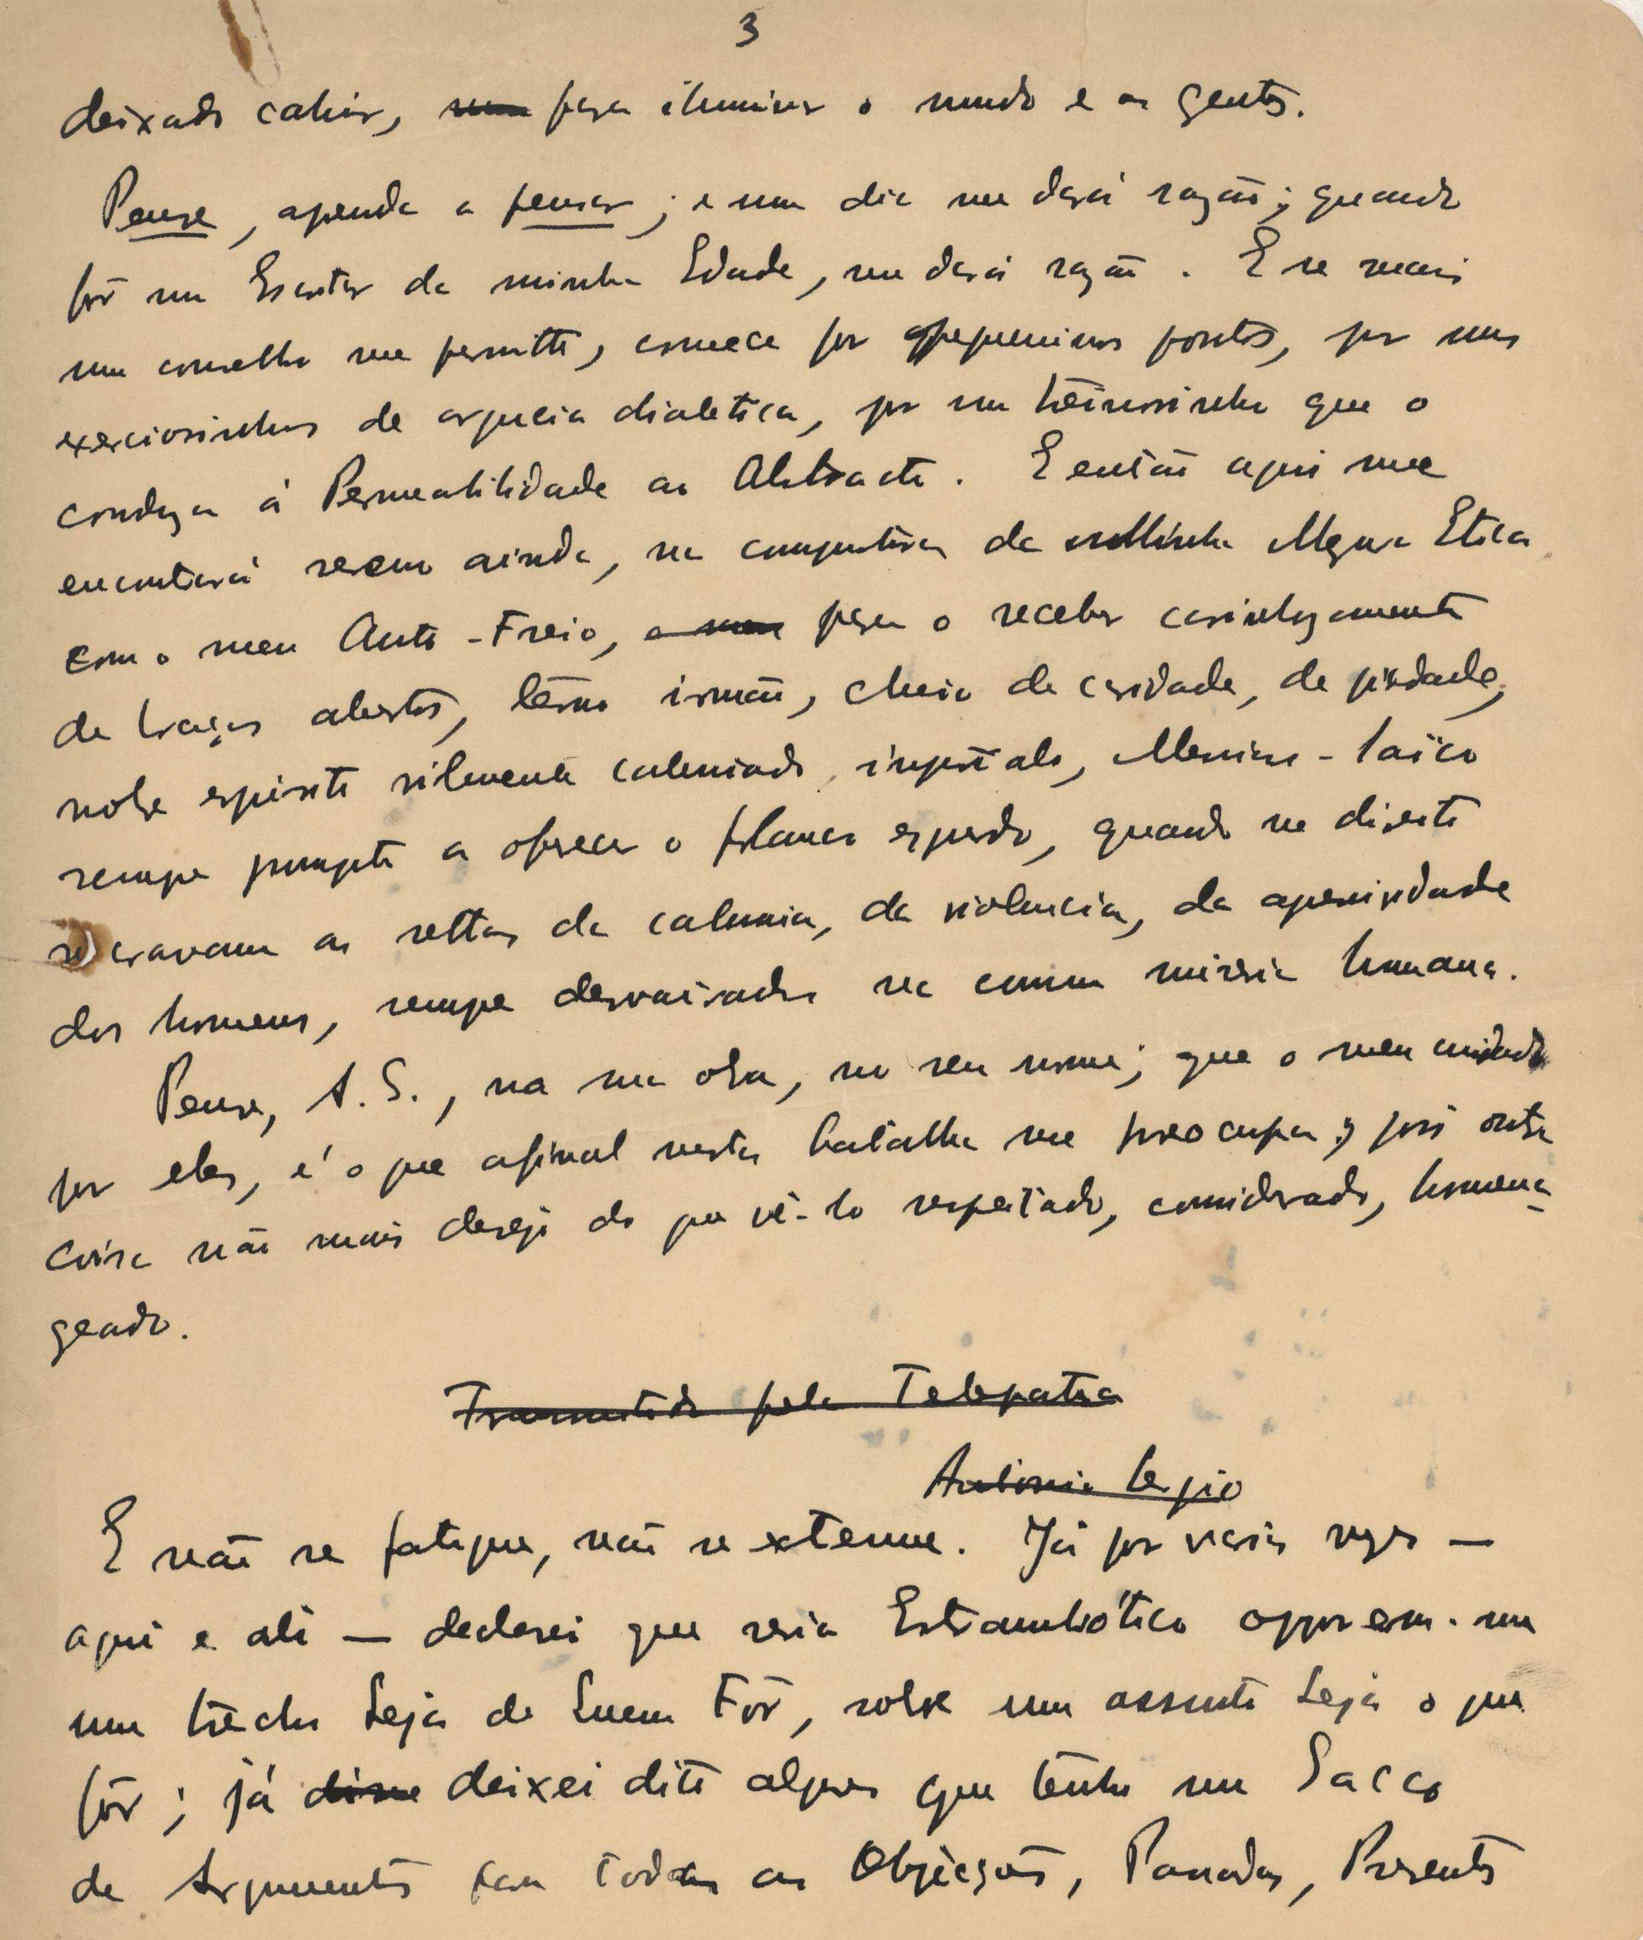 3
deixado cahir, para iluminar o mundo e as gentes.
Pense, aprenda a pensar; e um dia me dará razão; quando
fôr um Escritor da minha Edade, me dará razão. E se mais
um conselho me permitte, comece por pequeninos pontos, por uns
exerciosinhos de argucia dialetica, por um treinosinho que o
conduza á Permeabilidade ao Abstracto. E então aqui me
encontrará sereno ainda, na companhia da minha Magna Etica
com o meu Auto-Freio, para o receber carinhozamente
de braços abertos, térno irmão, cheio de caridade, de piedade,
nobre espirito vilmente caluniado, Menino-laïco
sempre prompto a oferecer o flanco esquerdo, quando no direito
se cravam as settas da calumnia, da violencia, da agressividade
dos homens, sempre desvairados na comum miséria humana.
Pense, A. S., na sua obra, no seu nome; que o meu cuidado
por eles, é o que afinal nesta batalha me preocupa; pois outra
coisa não mais desejo do que vê-lo respeitado, considerado, homena-
geado.
Transmitido pela Telepatia
Antonio Sergio
E não se fatigue, não se extenue. Já por varias vezes —
aqui e ali — declarei que seria Estrambótico opporem-me
um trecho Seja de Quem Fôr, sobre um assunto Seja o que
fôr; já disse deixei dito algures que tenho um Sacco
de Argumentos para todas as Objecções, Passadas, Presentes